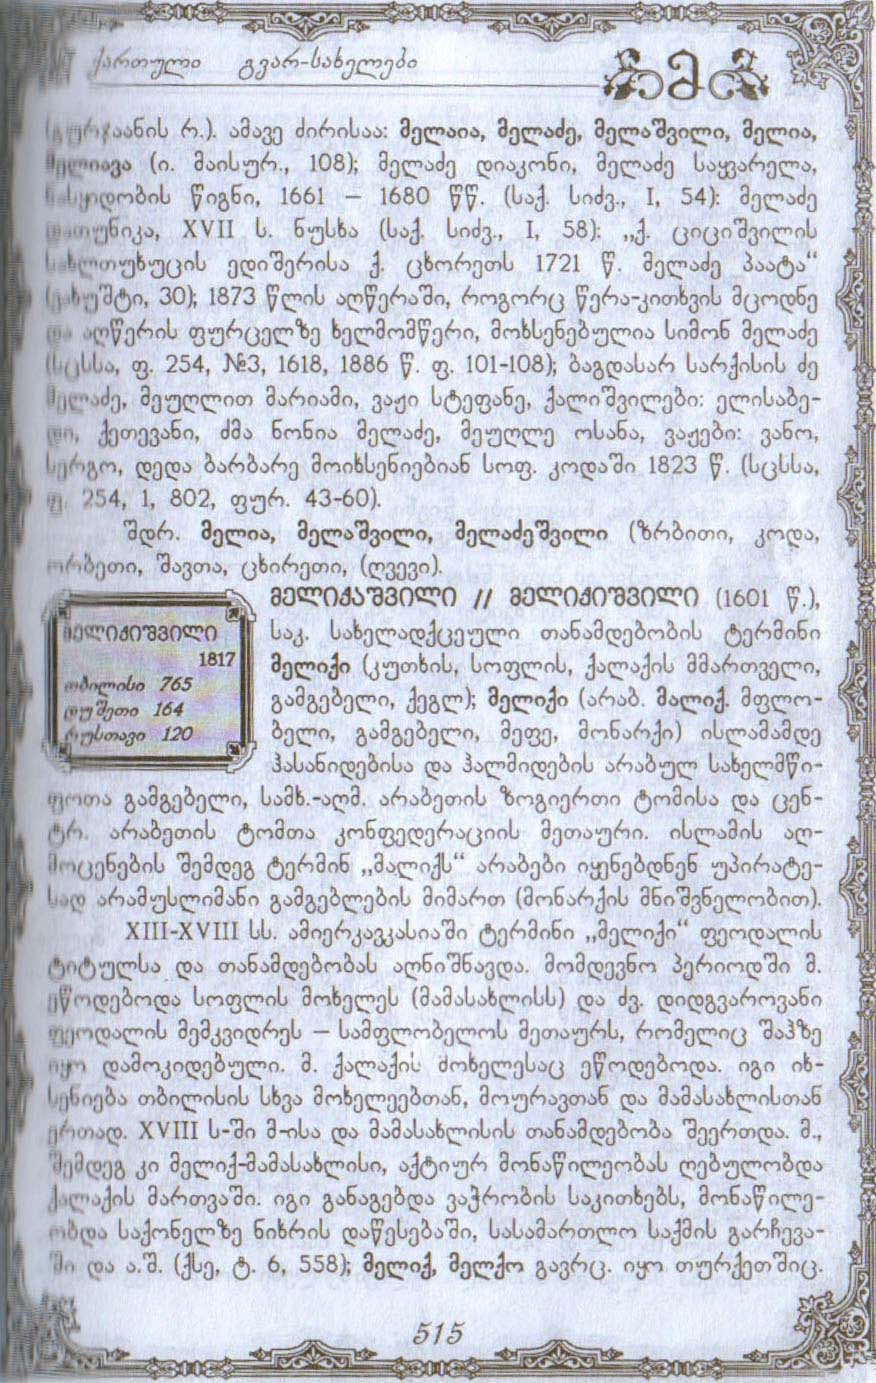 ქართული გვარ-სახელები
მ
რ.). ამავე ძირისაა: მელაია, მელაძე, მელაშვილი, მელია,
(ი. მაისურ., 108); მელაძე დიაკონი, მელაძე საყვარელა,
წიგნი, 1661 – 1680 წწ. (საქ. სიძვ., I, 54): მელაძე
XVII ს. ნუსხა (საქ. სიძვ., I, 58): „ქ. ციციშვილის
ედიშერისა ქ. ცხორეთს 1721 წ. მელაძე პაატა“
(ვახუშტი, 30); 1873 წლის აღწერაში, როგორც წერა-კითხვის მცოდნე
და აღწერის ფურცელზე ხელმომწერი, მოხსენებულია სიმონ მელაძე
(სცსსა, ფ. 254, №3, 1618, 1886 წ. ფ. 101-108); ბაგდასარ სარქისის ძე
მელაძე, მეუღლით მარიამი, ვაჟი სტეფანე, ქალიშვილები: ელისაბე-
დი, ქეთევანი, ძმა ნონია მელაძე, მეუღლე ოსანა, ვაჟები: ვანო,
სერგო, დედა ბარბარე მოიხსენიებიან სოფ. კოდაში 1823 წ. (სცსსა,
ფ. 254, 1, 802, ფურ. 43-60).
შდრ. მელია, მელაშვილი, მელაძეშვილი (ზრბითი, კოდა,
ორბეთი, შავთა, ცხირეთი, (ღვევი).
მელიქაშვილი // მელიქიშვილი (1601 წ.),
საკ. სახელადქცეული თანამდებობის ტერმინი
მელიქი (კუთხის, სოფლის, ქალაქის მმართველი,
გამგებელი, ქეგლ); მელიქი (არაბ. მალიქ. მფლო-
ბელი, გამგებელი, მეფე, მონარქი) ისლამამდე
ჰასანიდებისა და ჰალმიდების არაბულ სახელმწი-
მელიქიშვილი
1817
თბილისი 765
დუშეთი 164
რუსთავი 120
ფოთა გამგებელი, სამხ.-აღმ. არაბეთის ზოგიერთი ტომისა და ცენ-
ტრ. არაბეთის ტომთა კონფედერაციის მეთაური. ისლამის აღ-
მოცენების შემდეგ ტერმინ „მალიქს“ არაბები იყენებდნენ უპირატე-
სად არამუსლიმანი გამგებლების მიმართ (მონარქის მნიშვნელობით).
XIII-XVIII სს. ამიერკავკასიაში ტერმინი „მელიქი“ ფეოდალის
ტიტულსა და თანამდებობას აღნიშნავდა. მომდევნო პერიოდში მ.
ეწოდებოდა სოფლის მოხელეს (მამასახლისს) და ძვ. დიდგვაროვანი
ფეოდალის მემკვიდრეს – სამფლობელოს მეთაურს, რომელიც შაჰზე
იყო დამოკიდებული. მ. ქალაქის მოხელესაც ეწოდებოდა. იგი იხ-
სენიება თბილისის სხვა მოხელეებთან, მოურავთან და მამასახლისთან
ერთად. XVIII ს-ში მ-ისა და მამასახლისის თანამდებობა შეერთდა. მ.,
შემდეგ კი მელიქ-მამასახლისი, აქტიურ მონაწილეობას ღებულობდა
ქალაქის მართვაში. იგი განაგებდა ვაჭრობის საკითხებს, მონაწილე-
ობდა საქონელზე ნიხრის დაწესებაში, სასამართლო საქმის გარჩევა-
ში და ა.შ. (ქსე, ტ. 6, 558); მელიქ, მელქო გავრც. იყო თურქეთშიც.
515